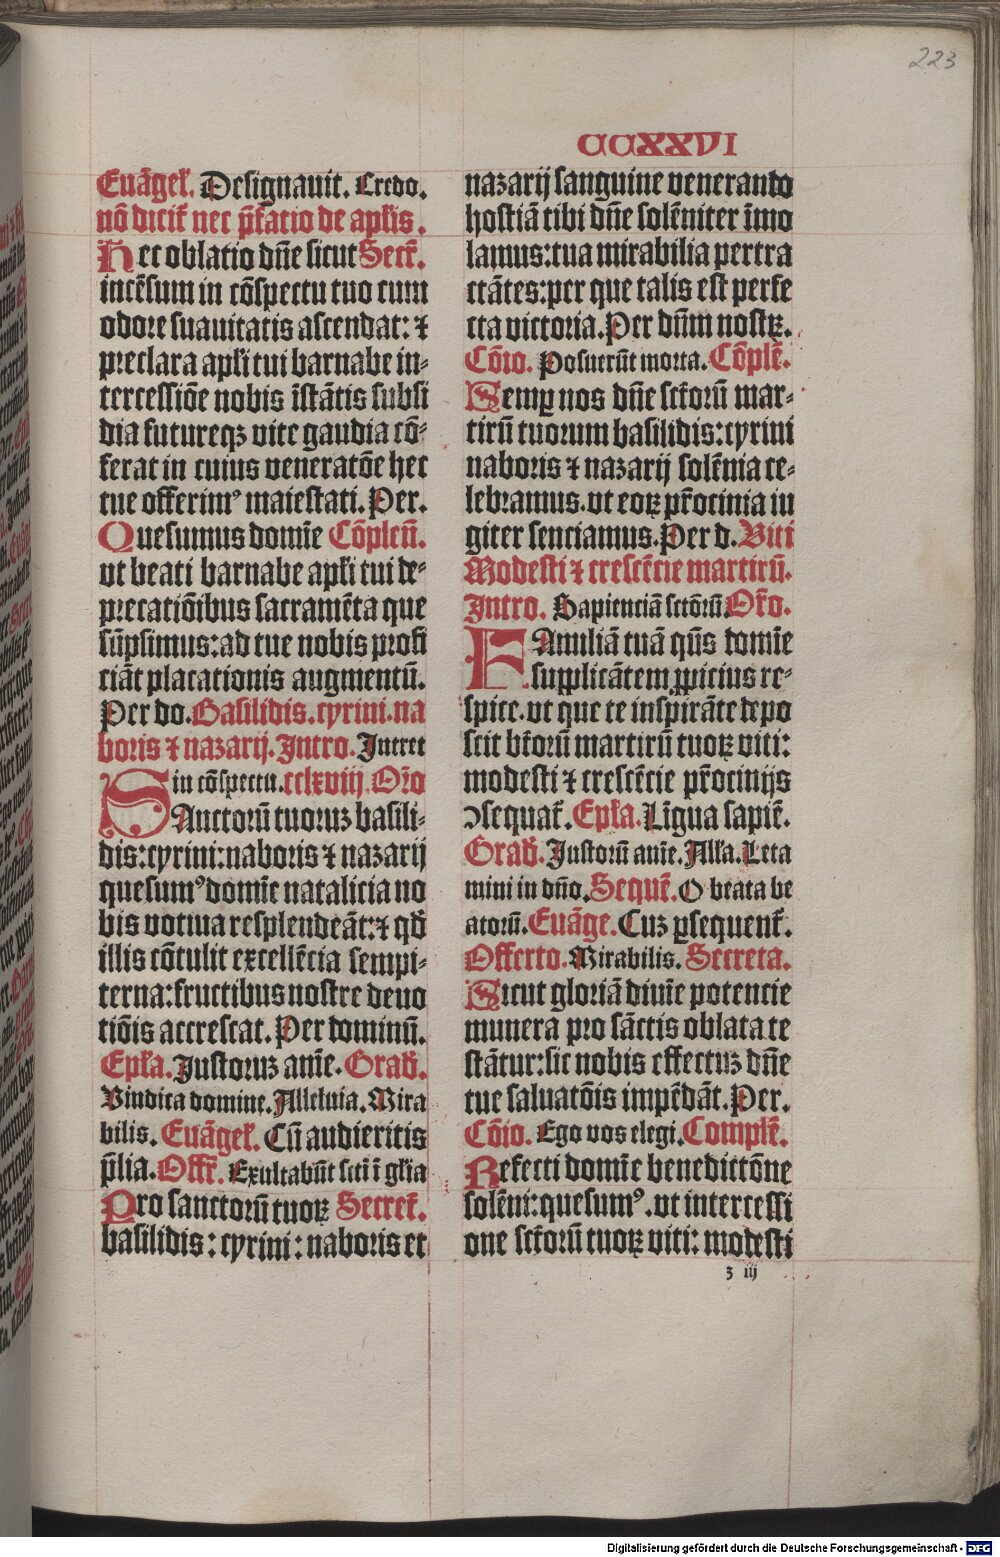 223
CCXXVI
Euãgeł. Designauit. Credo.
nõ dicit᷑ nec p̃fatio de apľis.
Hec oblatio dñe sicut Secr̃.
incẽsum in cõspectu tuo cum
odore suauitatis ascendat: ⁊
preclara apľi tui barnabe in-
tercessiõe nobis ĩstãtis subsi
dia futureqꝫ vite gaudia cõ-
ferat in cuius veneratõe hec
tue offerimꝰ maiestati. Per.
Quesumus domĩe Cõpleñ.
vt beati barnabe apľi tui de-
precatiõibus sacramẽta que
sũpsimus: ad tue nobis profi
ciãt placationis augmentũ.
Per do. Basilidis. cyrini. na
boris ⁊ nazarij. Intro. Intret
in cõspectu. cclxviij Oř̃o
SAnctorũ tuoruꝫ basili-
dis: cyrini: naboris ⁊ nazarij
quesumꝰ domĩe natalicia no
bis votiua resplendeãt: ⁊ qđ
illis cõtulit excellẽcia sempi-
terna: fructibus nostre deuo
tiõis accrescat. Per dominũ.
Epľa. Iustoruꝫ anĩe. Građ.
Vindica domine. Alleluia. Mira
bilis. Euãgeł. Cũ audieritis
p̃lia. Offr̃. Exultabũt scti ĩ głia
Pro sanctorũ tuoꝝ Secret̃.
basilidis: cyrini: naboris et
nazarij sanguine venerando
hostiã tibi dñe solẽniter ĩmo
lamus: tua mirabilia pertra
ctãtes: per que talis est perfe
cta victoria. Per dñm nostꝝ.
Cõio. Posuerũt morta. Cõplẽ.
Semꝑ nos dñe sctorũ mar-
tirũ tuorum basilidis: cyrini
naboris ⁊ nazarij solẽnia ce-
lebramus. vt eoꝝ pr̃ocinia iu
giter senciamus. Per d. Viti
Modesti ⁊ crescẽcie martirũ.
Intro. Sapienciã sctõrũ Oř̃o.
FAmiliã tuã qũs domĩe
supplicãtem ꝓpicius re-
spice. vt que te inspirãte depo
scit bt̃orũ martirũ tuoꝝ viti:
modesti ⁊ crescẽcie pr̃ocinijs
ꝯsequat᷑. Epľa. Lĩgua sapiẽ.
Građ. Iustorũ anĩe. Ałła. Leta
mini in dño. Sequẽ. O beata be
atorũ. Euãge. Cuꝫ ꝑsequent᷑.
Offerto. Mirabilis. Secreta.
Sicut gloriã diuĩe potencie
munera pro sãctis oblata te
stãtur: sic nobis effectuꝫ dñe
tue saluatõis impẽdãt. Per.
Cõio. Ego vos elegi. Complẽ.
Refecti domĩe benedictõne
solẽni: quesumꝰ. vt intercessi
one sctorũ tuoꝝ viti: modesti
z iij
Digitalisierung gefördert durch die Deutsche Forschungsgemeinschaft - DFG